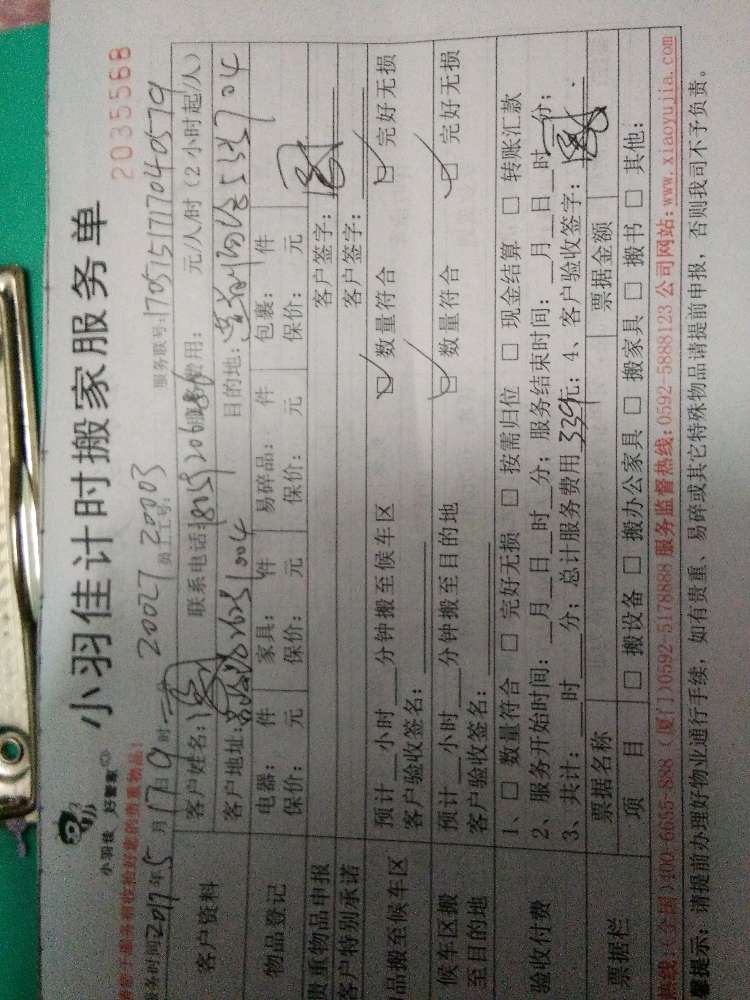 小羽佳计时搬家服务单
小羽佳 好管家
2035568
服务时间2017年5月17日9时 员工工号: 20027 20003 服务联号:1705151717040579
客户资料
客户姓名: 联系电话: 费用: 元/人/时（2小时起/人）
客户地址: 目的地:
物品登记
电器: 件 家具: 件 易碎品: 件 包裹: 件
保价: 元 保价: 元 保价: 元 保价: 元
贵重物品申报 客户签字:
客户特别承诺 客户签字:
品搬至候车区
预计 小时 分钟搬至候车区 □ 数量符合 □ 完好无损
客户验收签名:
候车区搬至目的地
预计 小时 分钟搬至目的地 □ 数量符合 □ 完好无损
客户验收签名:
验收付费
1、□ 数量符合 □ 完好无损 □ 按需归位 □ 现金结算 □ 转账汇款
2、服务开始时间: 月 日 时 分; 服务结束时间: 月 日 时 分;
3、共计: 时 分; 总计服务费用 339元; 4、客户验收签字:
票据栏
票据名称 票据金额
项 目 □ 搬设备 □ 搬办公家具 □ 搬家具 □ 搬书 □ 其他:
热线:(全国)400-6655-888 (厦门)0592-5178888 服务监督热线:0592-5888123 公司网站:www.xiaoyujia.com
馨提示: 请提前办理好物业通行手续, 如有贵重、易碎或其它特殊物品请提前申报, 否则我司不予负责。